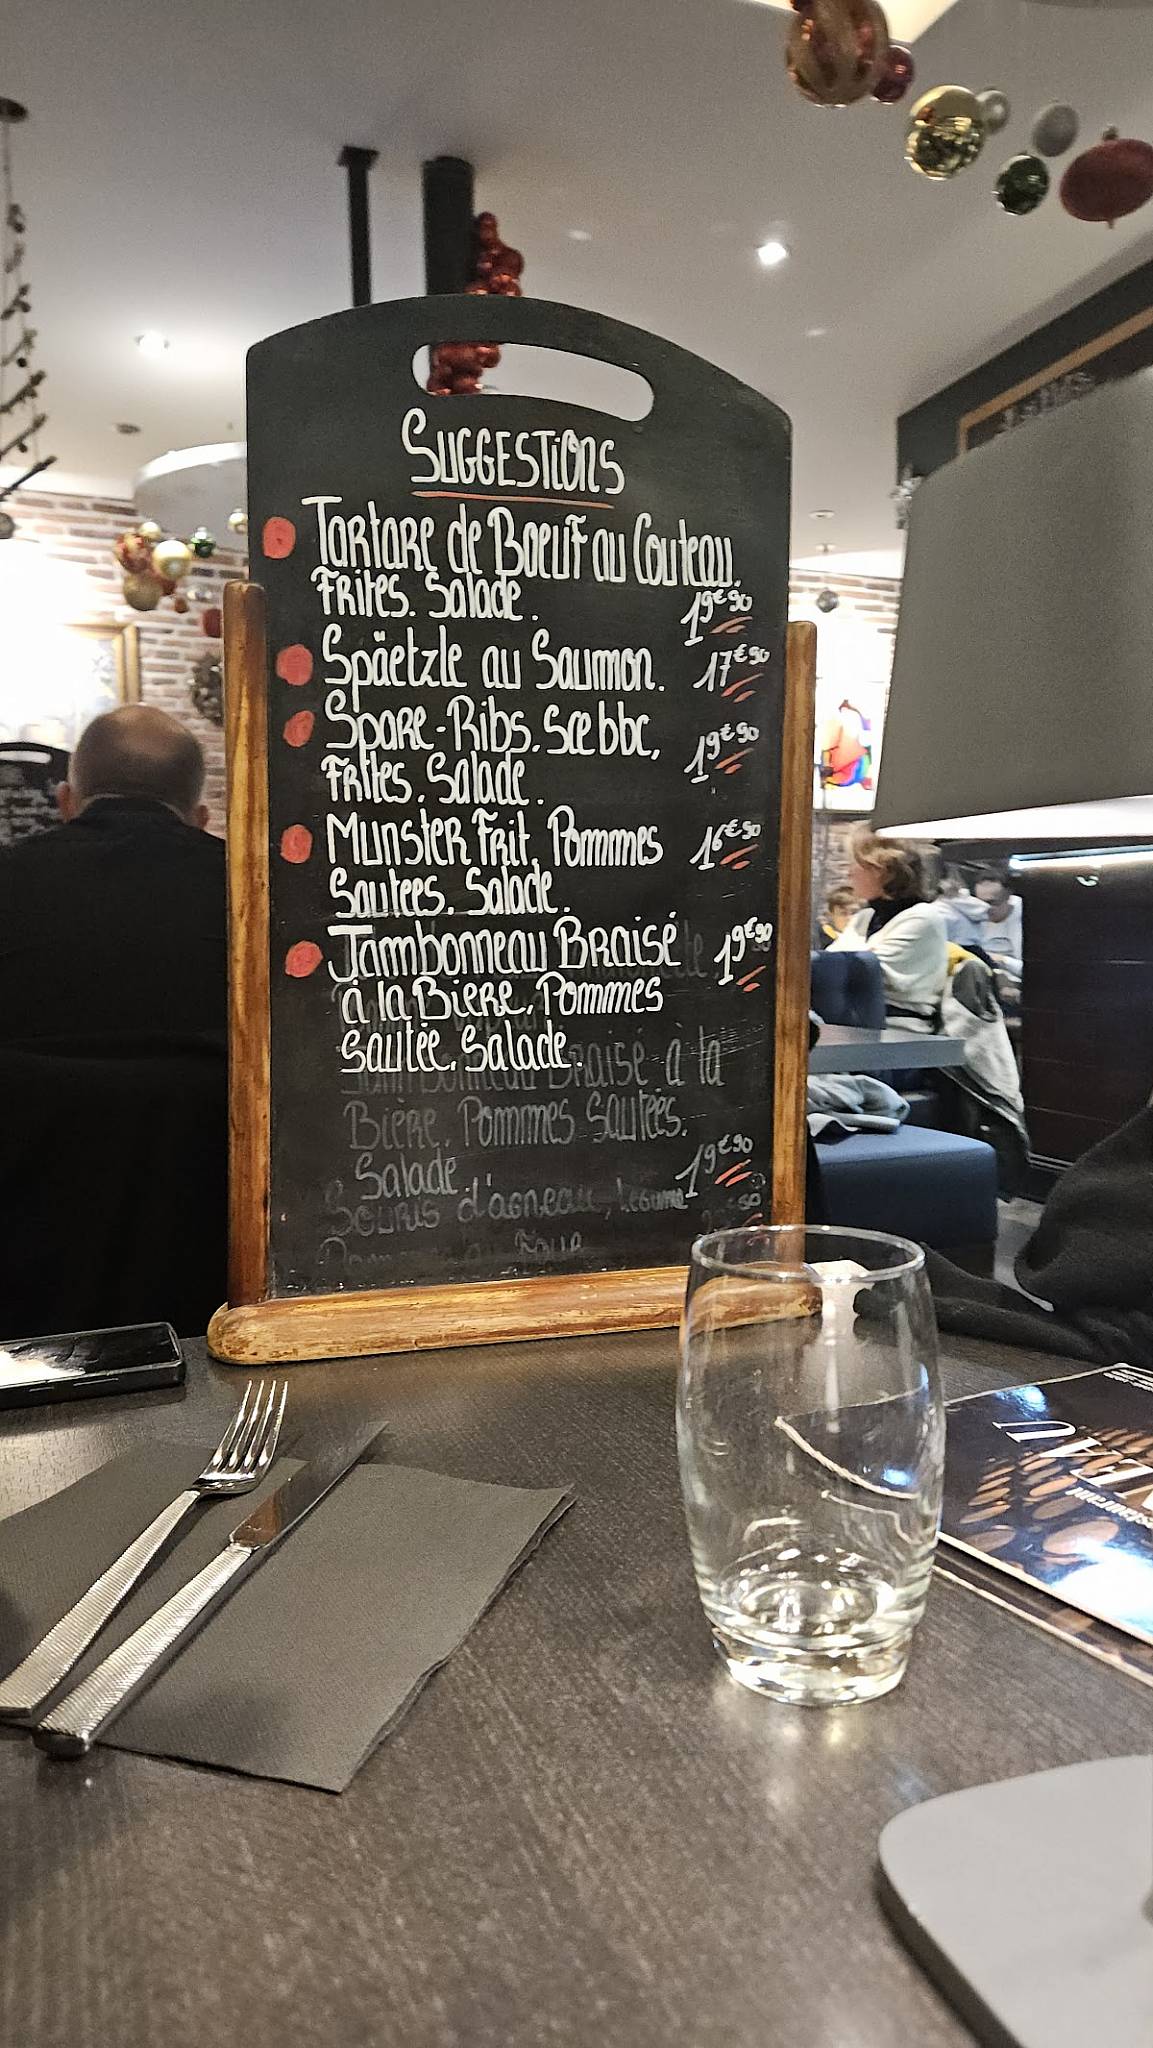 SUGGESTIONS
Tartare de Boeuf au Couteau.
Frites. Salade. 19€90
Späetzle au Saumon. 17€90
Spare-Ribs. Sce bbc,
Frites. Salade. 19€90
Munster Frit, Pommes 16€90
Sautees. Salade.
Jambonneau Braisé 19€90
à la Bière, Pommes
sautée. Salade.
Jambonneau Braisé à la
Bière, Pommes Sautées.
Salade 19€90
Souris d'agneau, Légume